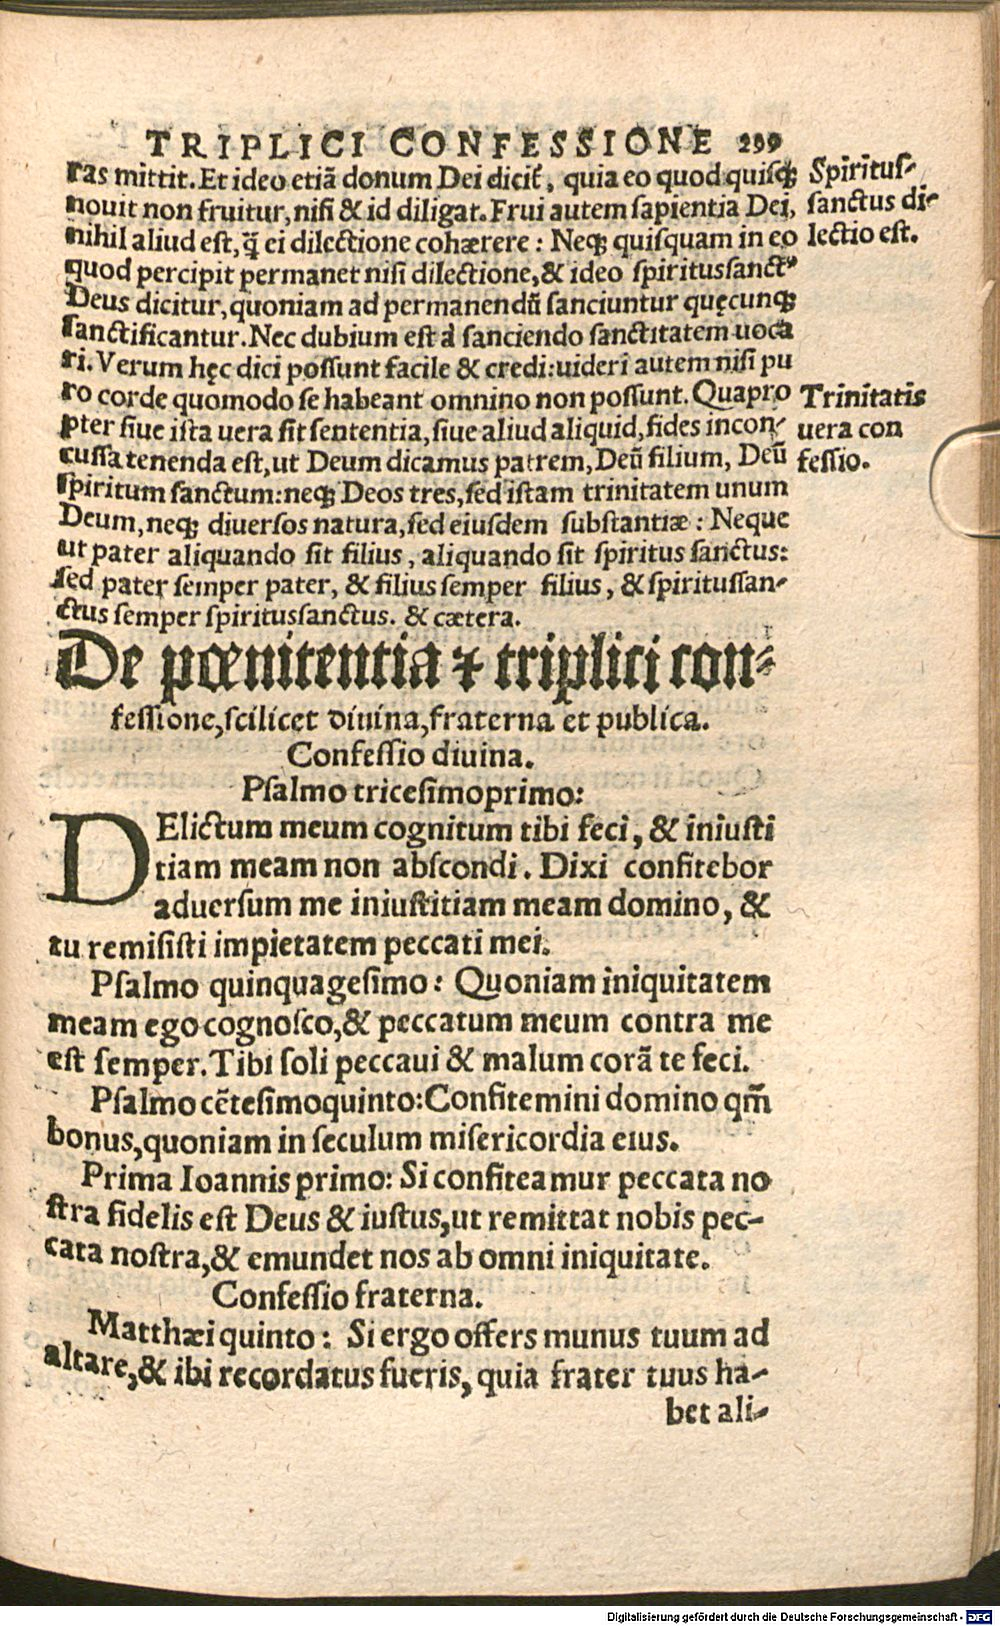 TRIPLICI CONFESSIONE 299
ras mittit. Et ideo etiã donum Dei dicit᷒, quia eo quod quisq᷒
nouit non fruitur, nisi & id diligat. Frui autem sapientia Dei,
nihil aliud est, q̃ ei dilectione cohærere: Neq᷒ quisquam in eo
quod percipit permanet nisi dilectione, & ideo spiritussanct᷒
Deus dicitur, quoniam ad permanendũ sanciuntur quęcunq᷒
sanctificantur. Nec dubium est à sanciendo sanctitatem uoca
ri. Verum hęc dici possunt facile & credi: uideri autem nisi pu
ro corde quomodo se habeant omnino non possunt. Quapro
pter siue ista uera sit sententia, siue aliud aliquid, fides incon-
cussa tenenda est, ut Deum dicamus patrem, Deũ filium, Deũ
spiritum sanctum: neq᷒ Deos tres, sed istam trinitatem unum
Deum, neq᷒ diuersos natura, sed eiusdem substantiæ: Neque
ut pater aliquando sit filius, aliquando sit spiritus sanctus:
sed pater semper pater, & filius semper filius, & spiritussan-
ctus semper spiritussanctus. & cætera.
Spiritus-
sanctus di-
lectio est.
Trinitatis
uera con
fessio.
De pœnitentia & triplici con-
fessione, scilicet diuina, fraterna et publica.
Confessio diuina.
Psalmo tricesimoprimo:
DElictum meum cognitum tibi feci, & iniusti
tiam meam non abscondi. Dixi confitebor
aduersum me iniustitiam meam domino, &
tu remisisti impietatem peccati mei.
Psalmo quinquagesimo: Quoniam iniquitatem
meam ego cognosco, & peccatum meum contra me
est semper. Tibi soli peccaui & malum corã te feci.
Psalmo cẽtesimoquinto: Confitemini domino qm̃
bonus, quoniam in seculum misericordia eius.
Prima Ioannis primo: Si confiteamur peccata no
stra fidelis est Deus & iustus, ut remittat nobis pec-
cata nostra, & emundet nos ab omni iniquitate.
Confessio fraterna.
Matthæi quinto: Si ergo offers munus tuum ad
altare, & ibi recordatus fueris, quia frater tuus ha-
bet ali-
Digitalisierung gefördert durch die Deutsche Forschungsgemeinschaft - DFG